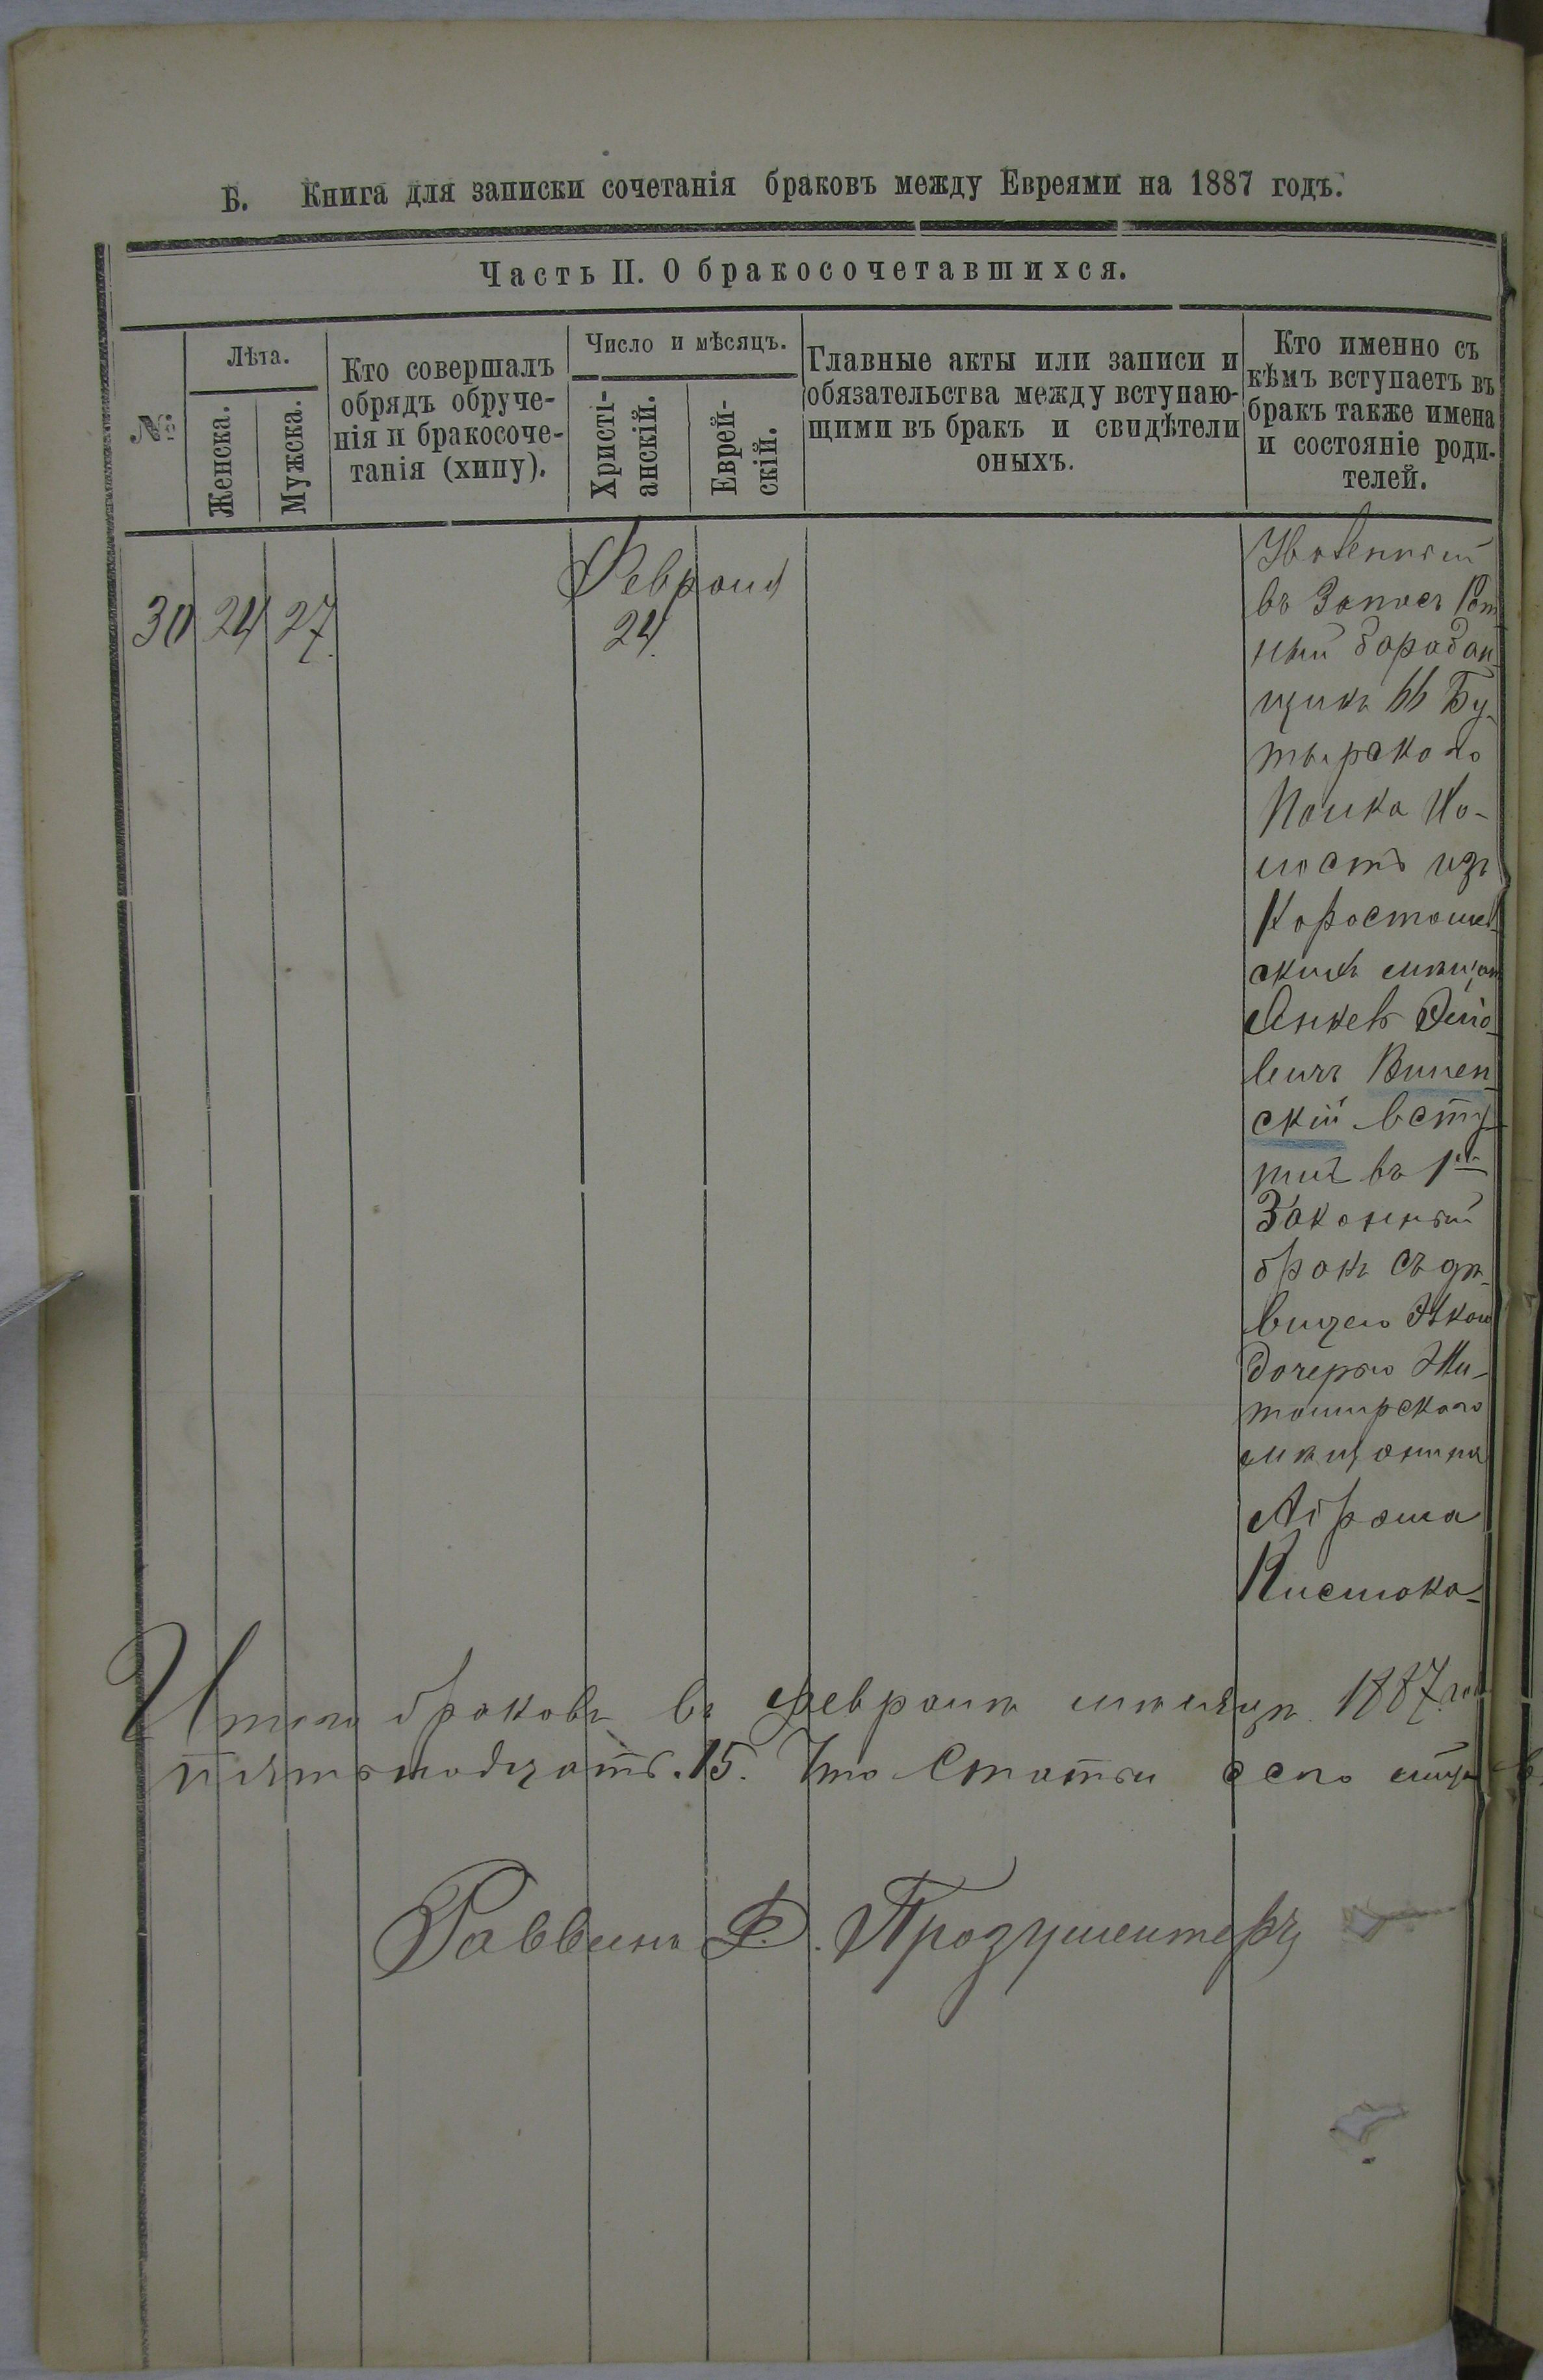 Б. Книга для записки сочетанія браковъ между Евреями на 1887 годъ.
Часть II. О бракосочетавшихся.
№
Лѣта.
Женска.
Мужска.
Кто совершалъ
обрядъ обруче-
нія и бракосоче-
танія (хипу).
Число и мѣсяцъ.
Христі-
анскій.
Еврей-
скій.
Главные акты или записи и
обязательства между вступаю-
щими въ бракъ и свидѣтели
оныхъ.
Кто именно съ
кѣмъ вступаетъ въ
бракъ также имена
и состояніе роди-
телей.
30 24 27.
Февраля
24.
Уволенный
въ Запасъ Рот
ный барабан-
щикъ 66 Бу-
тырскаго
Полка Хо-
лостъ изъ
Коростыше
скихъ мѣщан
Янкель
Вилен-
скій всту-
пилъ въ 1й
Законный
бракъ съ дѣ-
вицею
дочерью Жи-
томирскаго
мѣщанина
Абрама
Кислюка
Итого браковъ въ февралѣ мѣсяцѣ 1887 го
пятьнадцать. 15. Что Статьи
Раввинъ Ф. Празументеръ